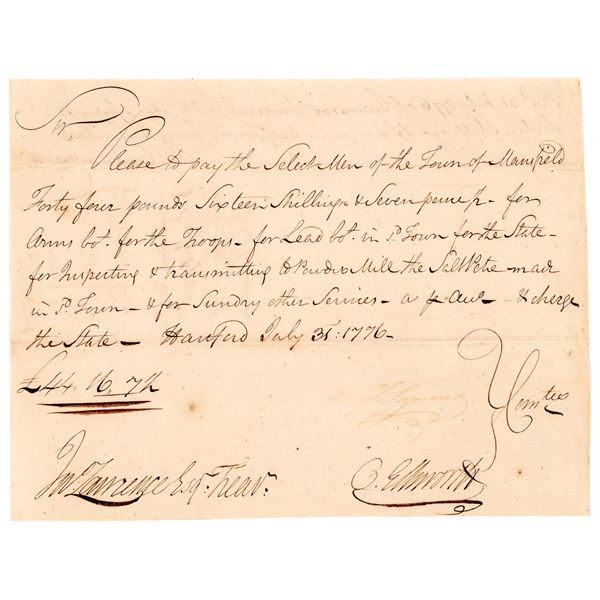 Sir,
Please to pay the Select Men of the Town of Mansfield
Forty four pounds Sixteen Shillings & Seven pence ½ - for
Arms bot. for the Troops - for Lead bot. in sd. Town for the State -
for Inspecting & transmitting to Powder Mill the Salt Petre made
in sd. Town - & for Sundry other Services - as pr Acct - & charge
the State - Hartford July 31st. 1776 -
£44. 16. 7½
T Seymour
Comtee
Jno. Lawrence Esqr. Treasr.
O. Ellsworth